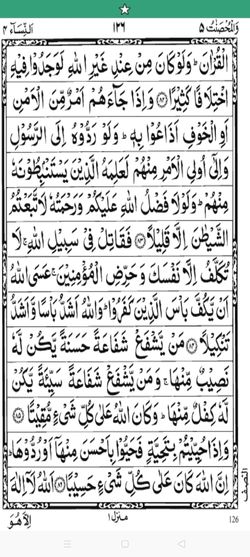 وَالْمُحْصَنٰتُ ٥ ١٢٦ اَلنِّسَآء ٤
الْقُرْاٰنَ ؕ وَلَوْ كَانَ مِنْ عِنْدِ غَيْرِ اللّٰهِ لَوَجَدُوْا فِيْهِ
اخْتِلَافًا كَثِيْرًا ﴿٨٢﴾ وَاِذَا جَآءَهُمْ اَمْرٌ مِّنَ الْاَمْنِ
اَوِ الْخَوْفِ اَذَاعُوْا بِهٖ ؕ وَلَوْ رَدُّوْهُ اِلَى الرَّسُوْلِ
وَاِلٰٓى اُولِى الْاَمْرِ مِنْهُمْ لَعَلِمَهُ الَّذِيْنَ يَسْتَنْۢبِطُوْنَهٗ
مِنْهُمْ ؕ وَلَوْلَا فَضْلُ اللّٰهِ عَلَيْكُمْ وَرَحْمَتُهٗ لَاتَّبَعْتُمُ
الشَّيْطٰنَ اِلَّا قَلِيْلًا ﴿٨٣﴾ فَقَاتِلْ فِىْ سَبِيْلِ اللّٰهِ ۚ لَا
تُكَلَّفُ اِلَّا نَفْسَكَ وَحَرِّضِ الْمُؤْمِنِيْنَ ۚ عَسَى اللّٰهُ
اَنْ يَّكُفَّ بَاْسَ الَّذِيْنَ كَفَرُوْا ؕ وَاللّٰهُ اَشَدُّ بَاْسًا وَّاَشَدُّ
تَنْكِيْلًا ﴿٨٤﴾ مَنْ يَّشْفَعْ شَفَاعَةً حَسَنَةً يَّكُنْ لَّهٗ
نَصِيْبٌ مِّنْهَا ۚ وَمَنْ يَّشْفَعْ شَفَاعَةً سَيِّئَةً يَّكُنْ
لَّهٗ كِفْلٌ مِّنْهَا ؕ وَكَانَ اللّٰهُ عَلٰى كُلِّ شَىْءٍ مُّقِيْتًا ﴿٨٥﴾
وَاِذَا حُيِّيْتُمْ بِتَحِيَّةٍ فَحَيُّوْا بِاَحْسَنَ مِنْهَاۤ اَوْ رُدُّوْهَا ؕ
اِنَّ اللّٰهَ كَانَ عَلٰى كُلِّ شَىْءٍ حَسِيْبًا ﴿٨٦﴾ اَللّٰهُ لَاۤ اِلٰهَ
النصف
اِلَّا هُوَ منزل ١ 126